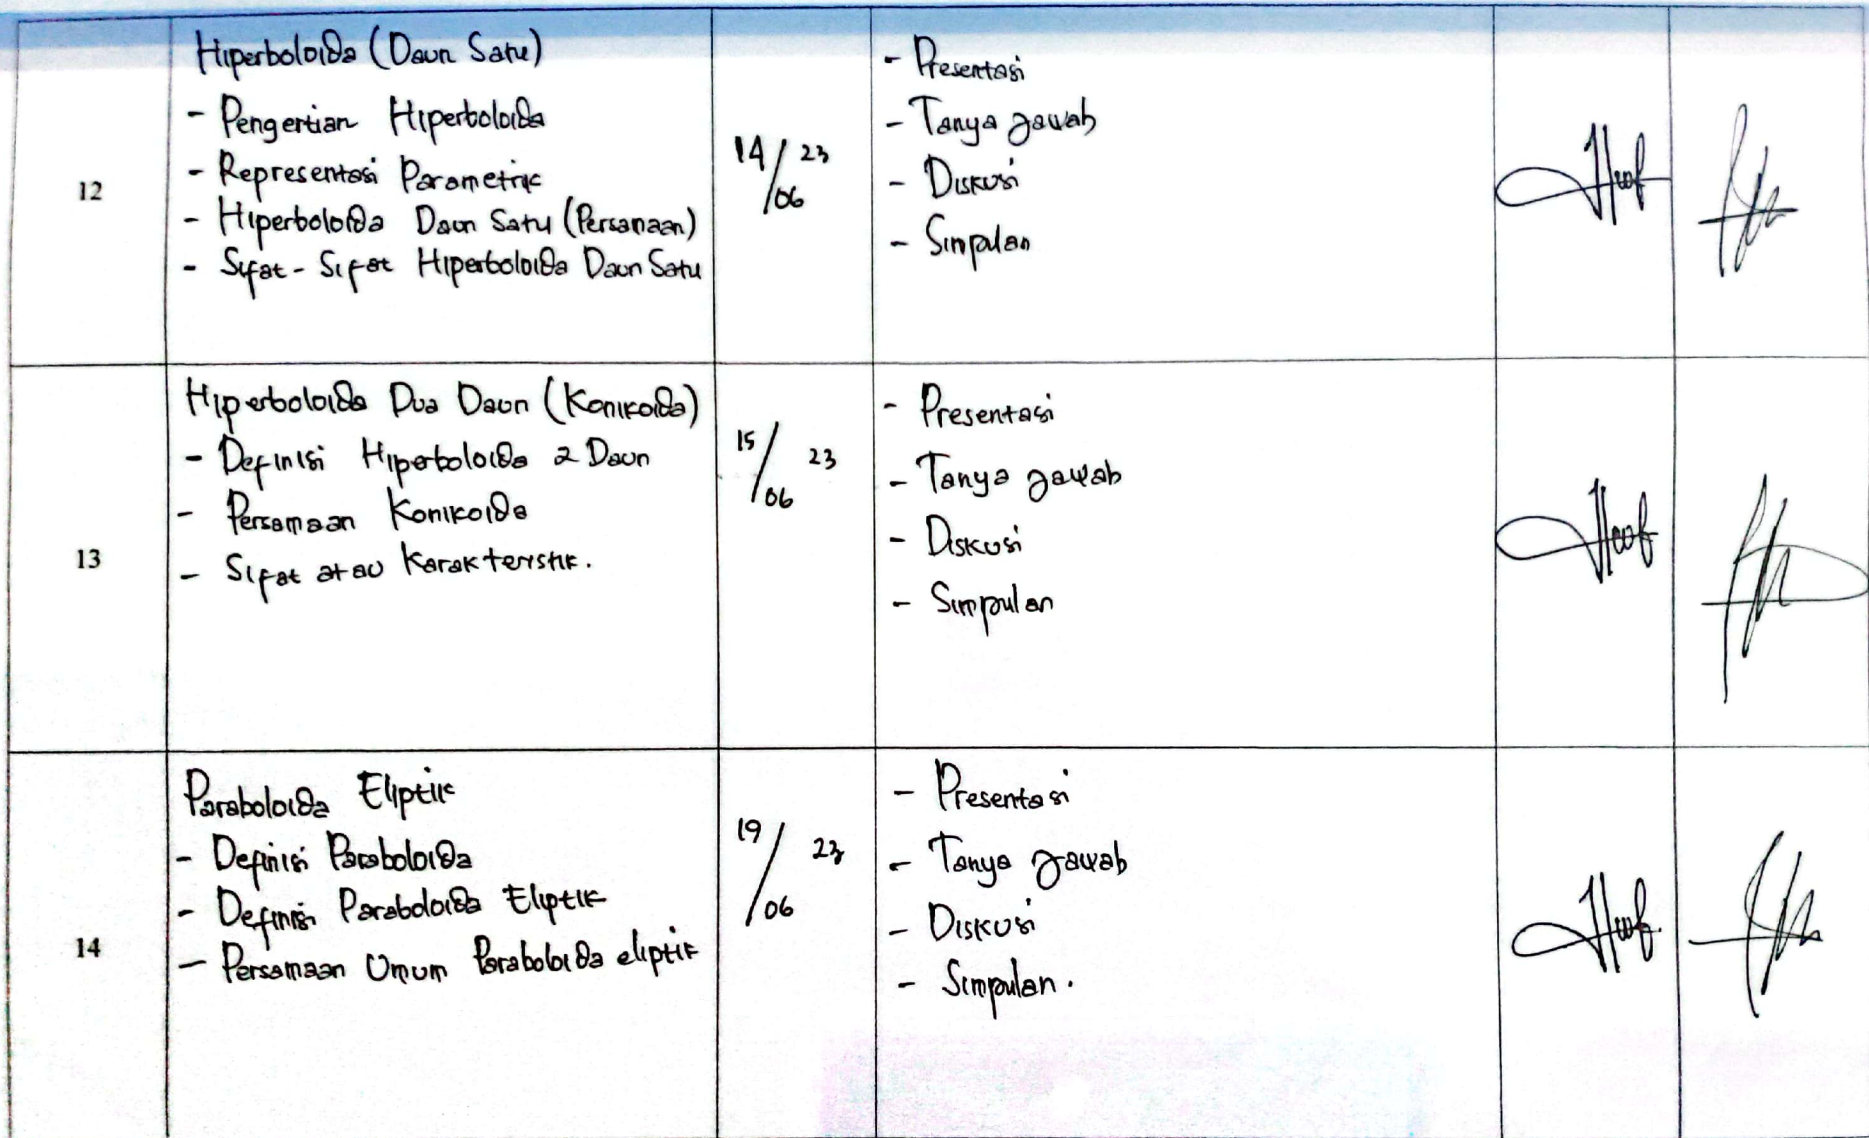 12
Hiperboloida (Daun Satu)
- Pengertian Hiperboloida
- Representasi Parametric
- Hiperboloida Daun Satu (Persamaan)
- Sifat-Sifat Hiperboloida Daun Satu
14/06 23
- Presentasi
- Tanya Jawab
- Diskusi
- Simpulan
13
Hiperboloida Dua Daun (Konikoida)
- Definisi Hiperboloida 2 Daun
- Persamaan Konikoida
- Sifat atau Karakteristik.
15/06 23
- Presentasi
- Tanya Jawab
- Diskusi
- Simpulan
14
Paraboloida Eliptik
- Definisi Paraboloida
- Definisi Paraboloida Eliptik
- Persamaan Umum Paraboloida eliptik
19/06 23
- Presentasi
- Tanya Jawab
- Diskusi
- Simpulan.